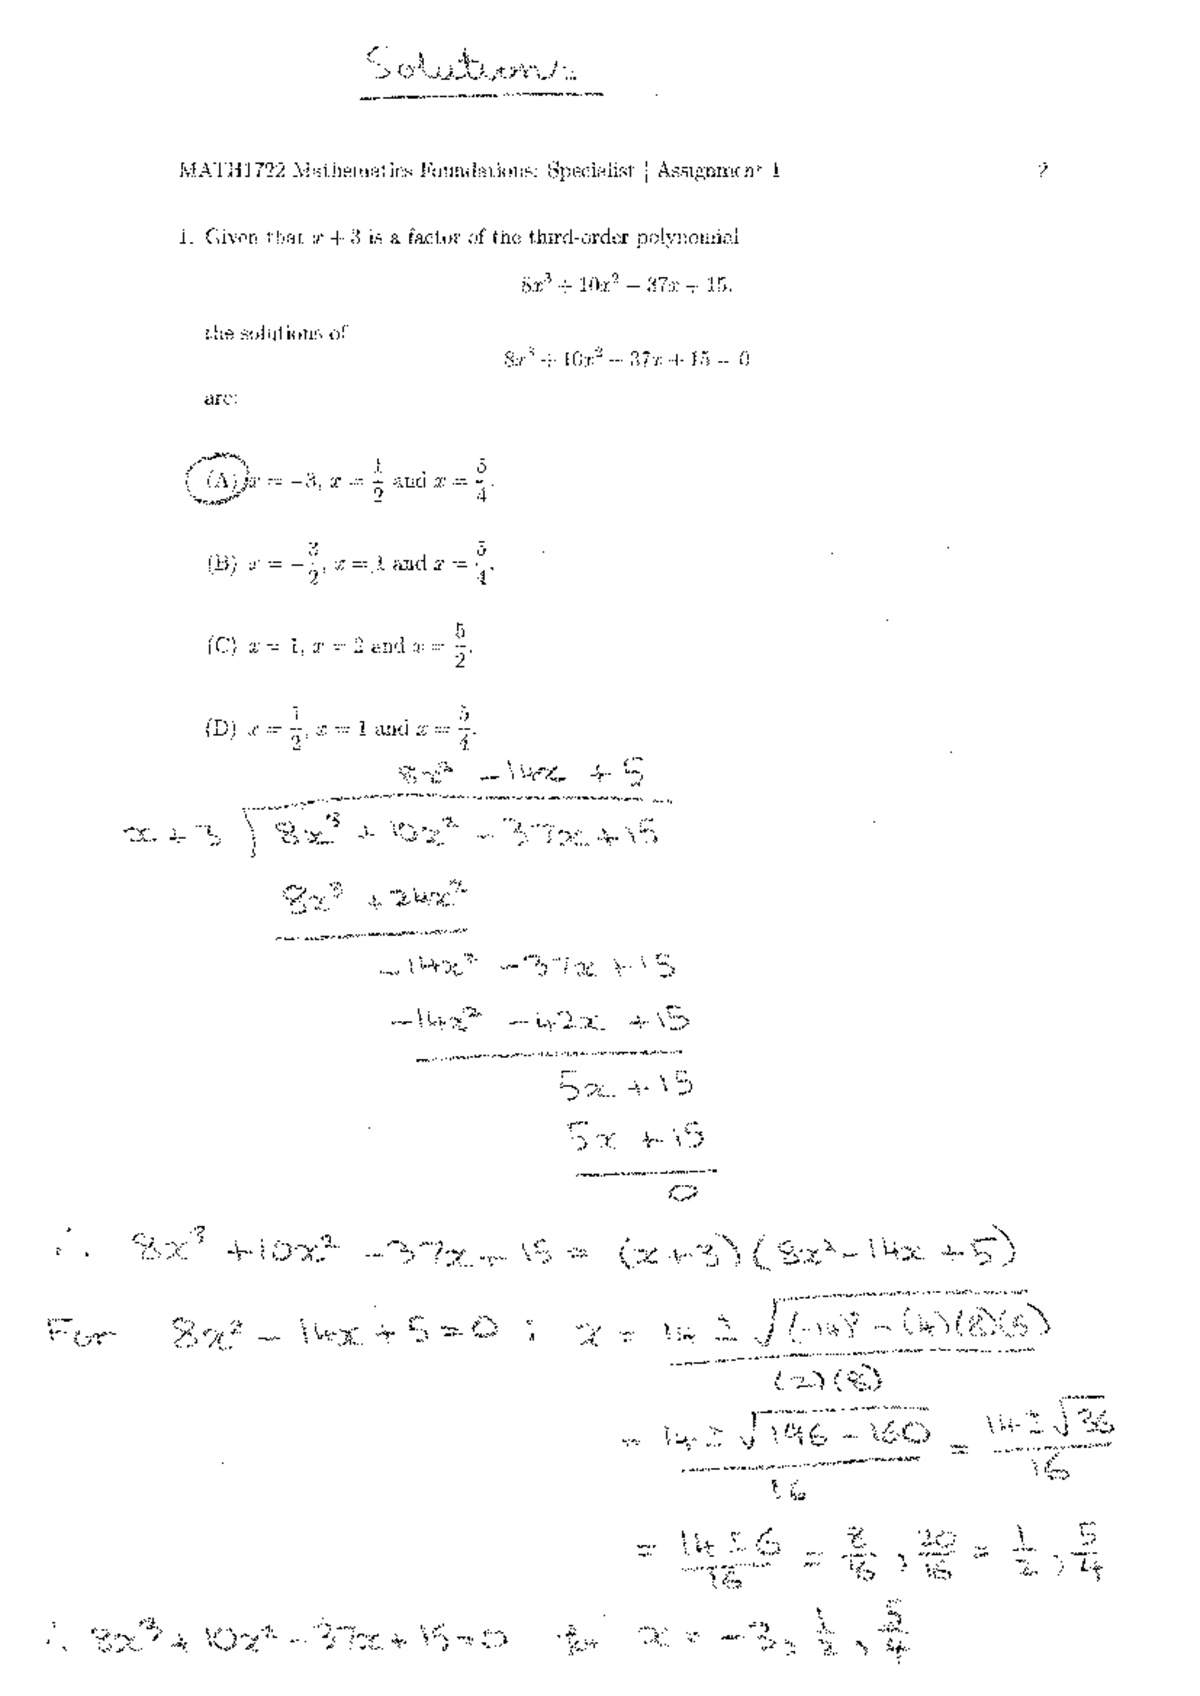 Solutions
MATH1722 Mathematics Foundations: Specialist | Assignment 1 2
1. Given that x + 3 is a factor of the third-order polynomial
8x³ + 10x² − 37x + 15,
the solutions of
8x³ + 10x² − 37x + 15 = 0
are:
(A) x = −3, x = 1/2 and x = 5/4.
(B) x = −3/2, x = 1 and x = 5/4.
(C) x = 1, x = 2 and x = 5/2.
(D) x = 1/2, x = 1 and x = 5/4.
8x² − 14x + 5
x + 3 ) 8x³ + 10x² − 37x + 15
8x³ + 24x²
−14x² − 37x + 15
−14x² − 42x + 15
5x + 15
5x + 15
0
∴ 8x³ + 10x² − 37x + 15 = (x+3)(8x² − 14x + 5)
For 8x² − 14x + 5 = 0 : x = 14 ± √((−14)² − (4)(8)(5))
(2)(8)
= 14 ± √(196 − 160) / 16 = 14 ± √36 / 16
= 14 ± 6 / 16 = 8/16 , 20/16 = 1/2 , 5/4
∴ 8x³ + 10x² − 37x + 15 = 0 for x = −3, 1/2, 5/4